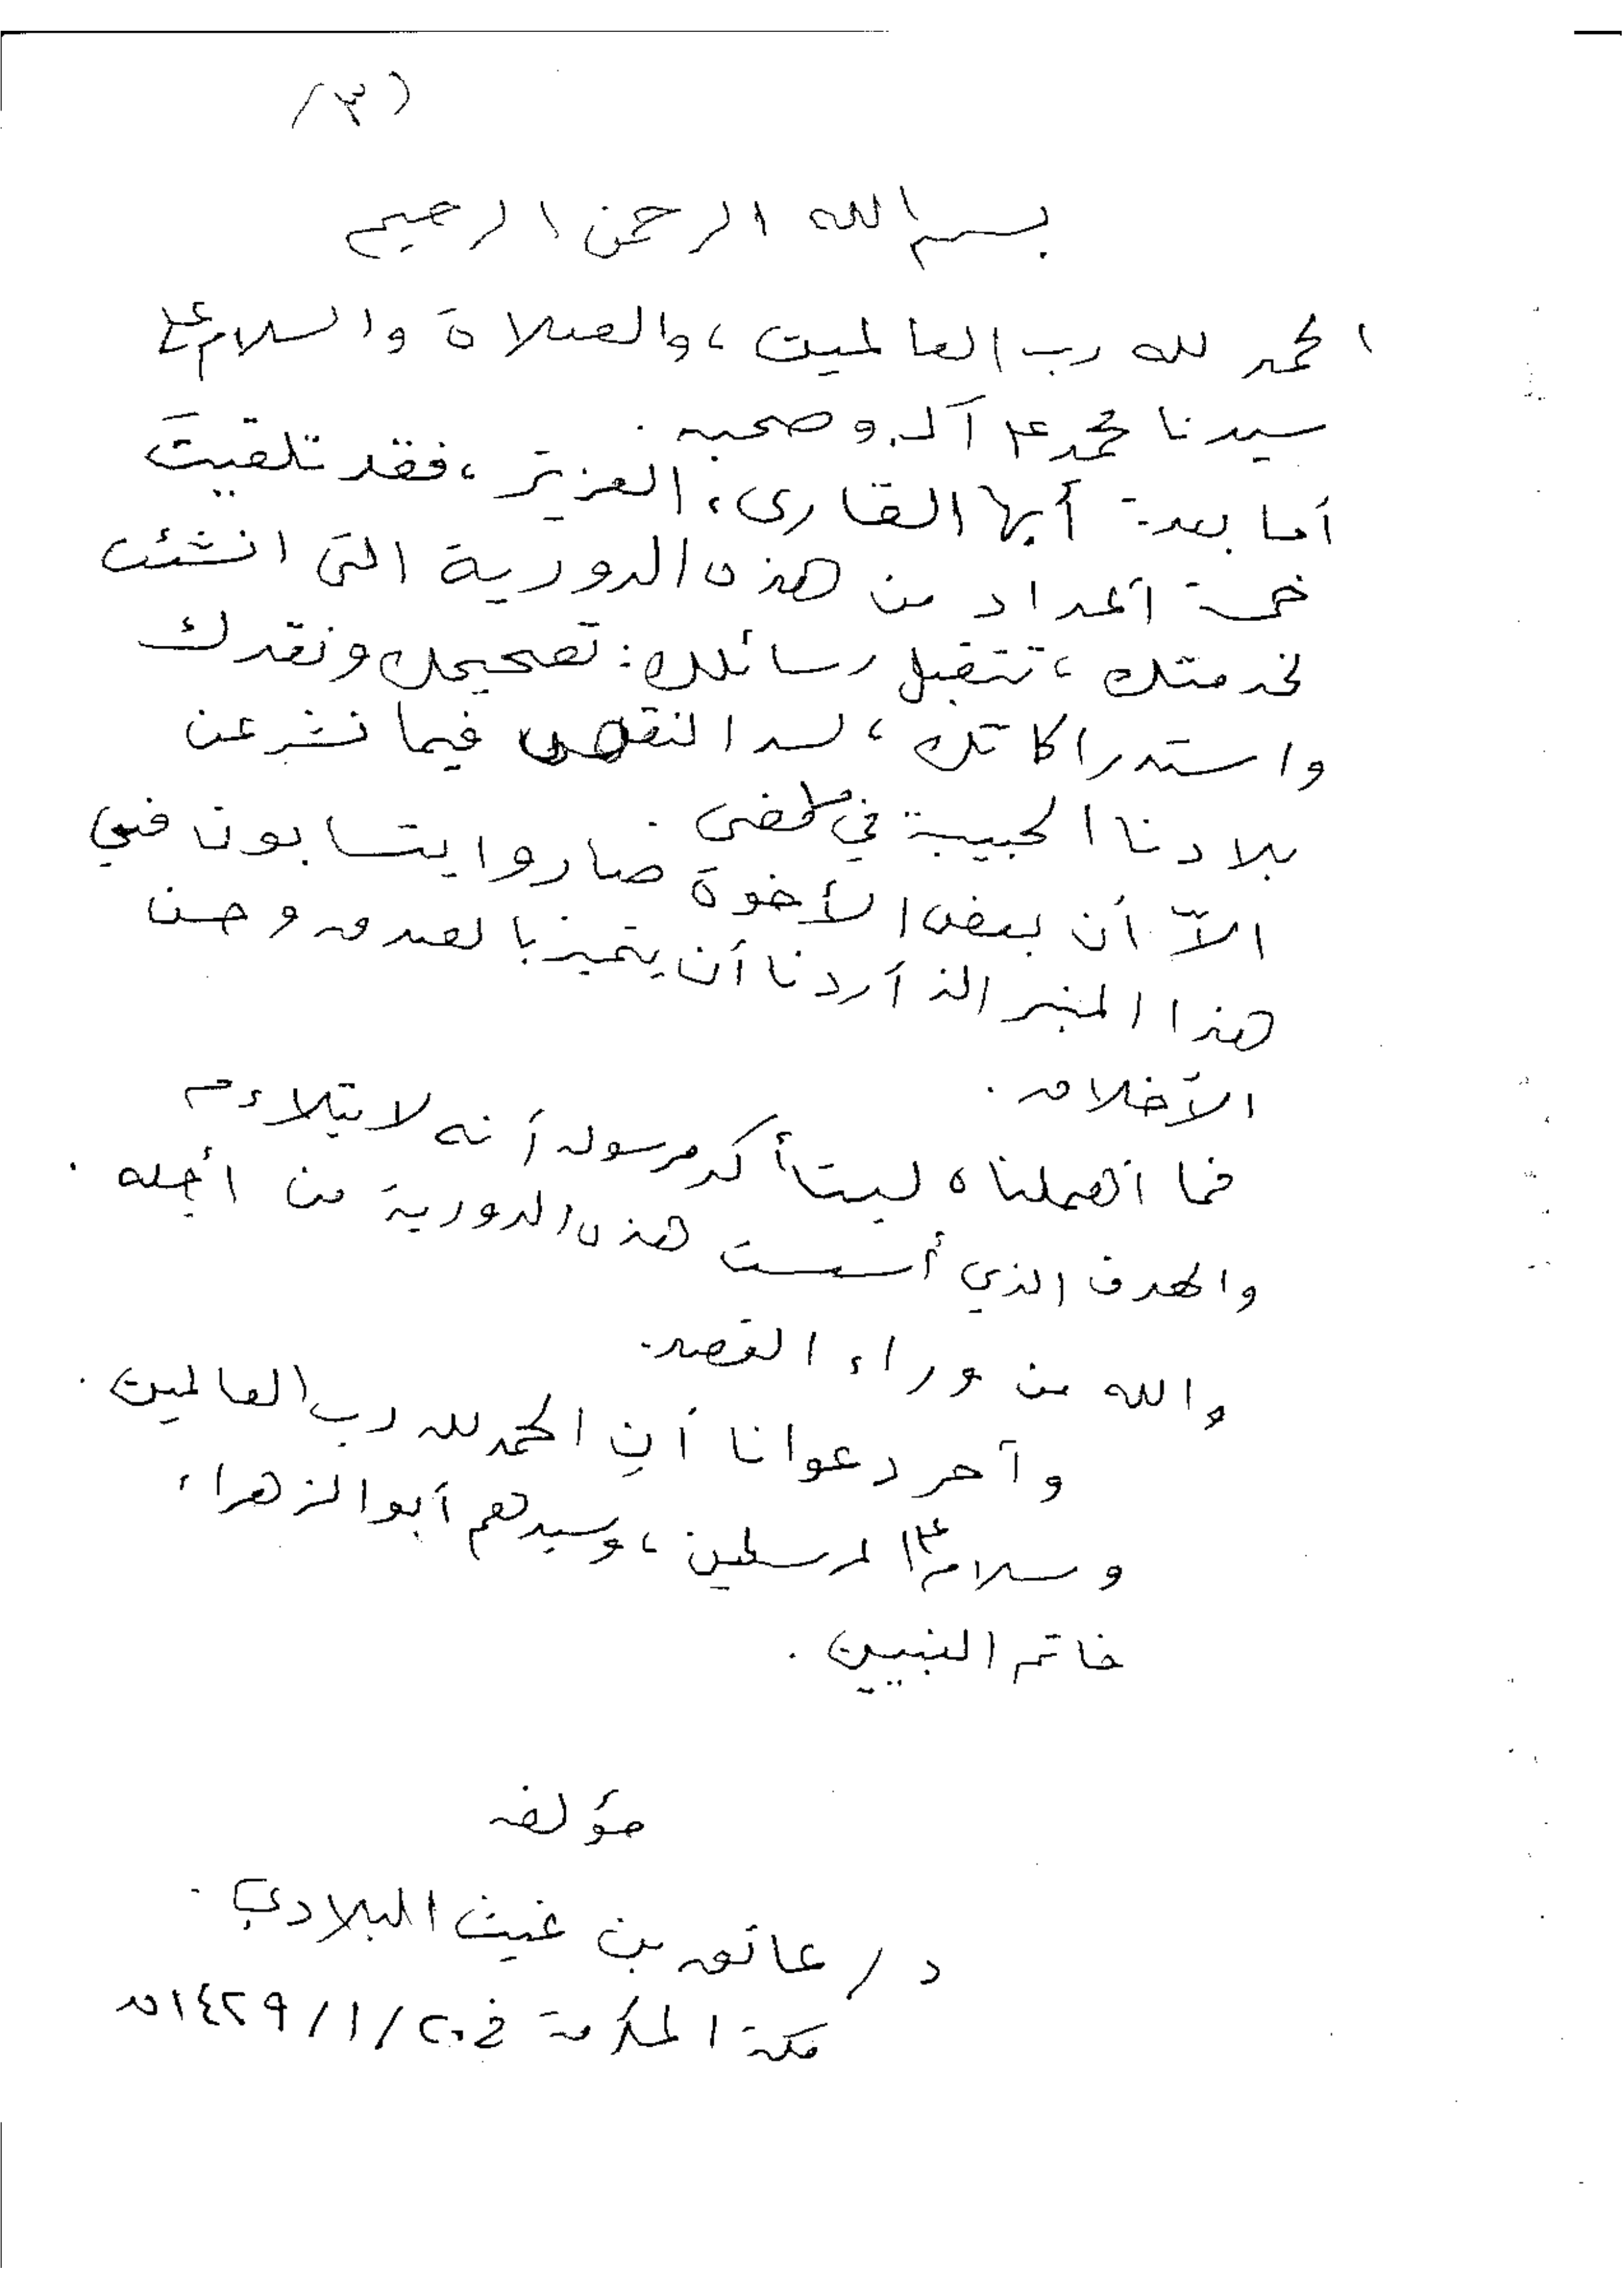 (٣)
بسم الله الرحمن الرحيم
الحمد لله رب العالمين ، والصلاة والسلام على
سيدنا محمد على آله وصحبه .
أما بعد : أيها القارىء العزيز ، فقد تلقيتَ
خمسة أعداد من هذه الدورية التي انشئت
لخدمتك ، تتقبل رسائلك : تصحيحك ونقدك
واستدراكاتك ، لسد النقص فيما نشر عن
بلادنا الحبيبة فيما مضى .
الاّ أن بعض الأخوة صاروا يتسابون في
هذا المنبر الذ أردنا أن يتميز بالصدق وحسن
الأخلاق .
فما أهملناه ليتأكد مرسوله أنه لا يتلاءم
والهدف الذي أسست هذه الدورية من أجله .
والله من وراء القصد .
وآخر دعوانا أن الحمد لله رب العالمين .
وسلام على المرسلين ، وسيدهم أبو الزهراء
خاتم النبيين .
مؤلفه
د / عاتق بن غيث البلادي .
مكة المكرمة في ٢٠/١/١٤٢٩ه